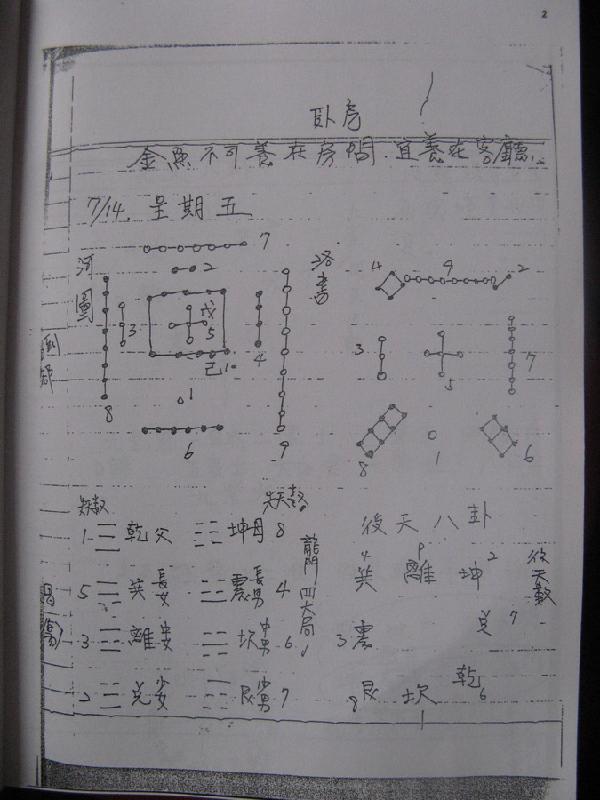 2
臥房
金魚不可養在房間.宜養在客廳.
7/14. 星期五
河圖
7
2
3
戊
5
己10
4
8
1
6
9
洛書
4
9
2
3
5
7
8
1
6
先天數
1 ☰ 乾父 ☷ 坤母 8
5 ☴ 巽長女 ☳ 震長男 4
3 ☲ 離中女 ☵ 坎中男 6
2 ☱ 兌少女 ☶ 艮少男 7
龍門四大局
後天八卦
後天數
4 巽 9 離 坤 2
3 震 兌 7
8 艮 坎 1 乾 6